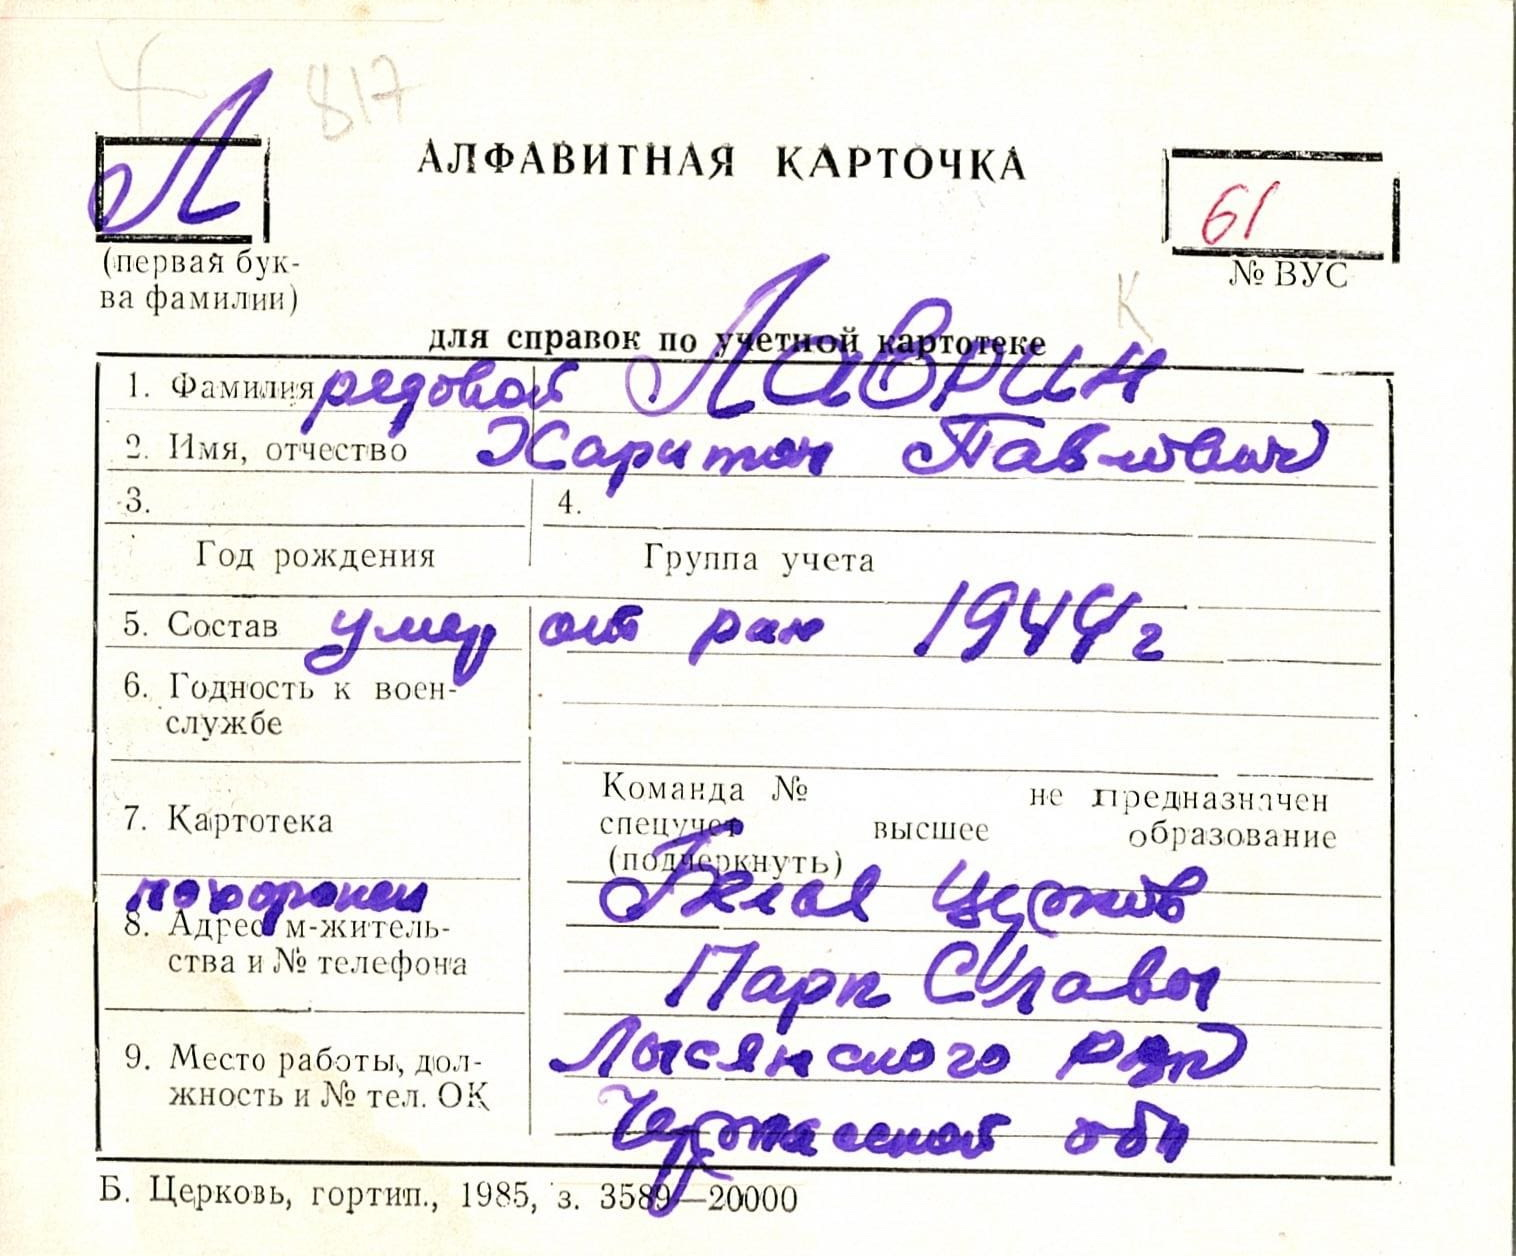 817
Л
АЛФАВИТНАЯ КАРТОЧКА
61
(первая бук-
ва фамилии)
№ ВУС
К
для справок по учетной картотеке
1. Фамилия рядовой Лаврин
2. Имя, отчество Харитон Павлович
3. 4.
Год рождения Группа учета
5. Состав умер от ран 1944 г
6. Годность к воен-
службе
Команда № не предназначен
7. Картотека спецучет высшее образование
(подчеркнуть)
похоронен Белая Церковь
8. Адрес м-житель-
ства и № телефона Парк Славы
9. Место работы, дол- Лысянского р-на
жность и № тел. ОК
Черкасской обл
Б. Церковь, гортип., 1985, з. 3589—20000